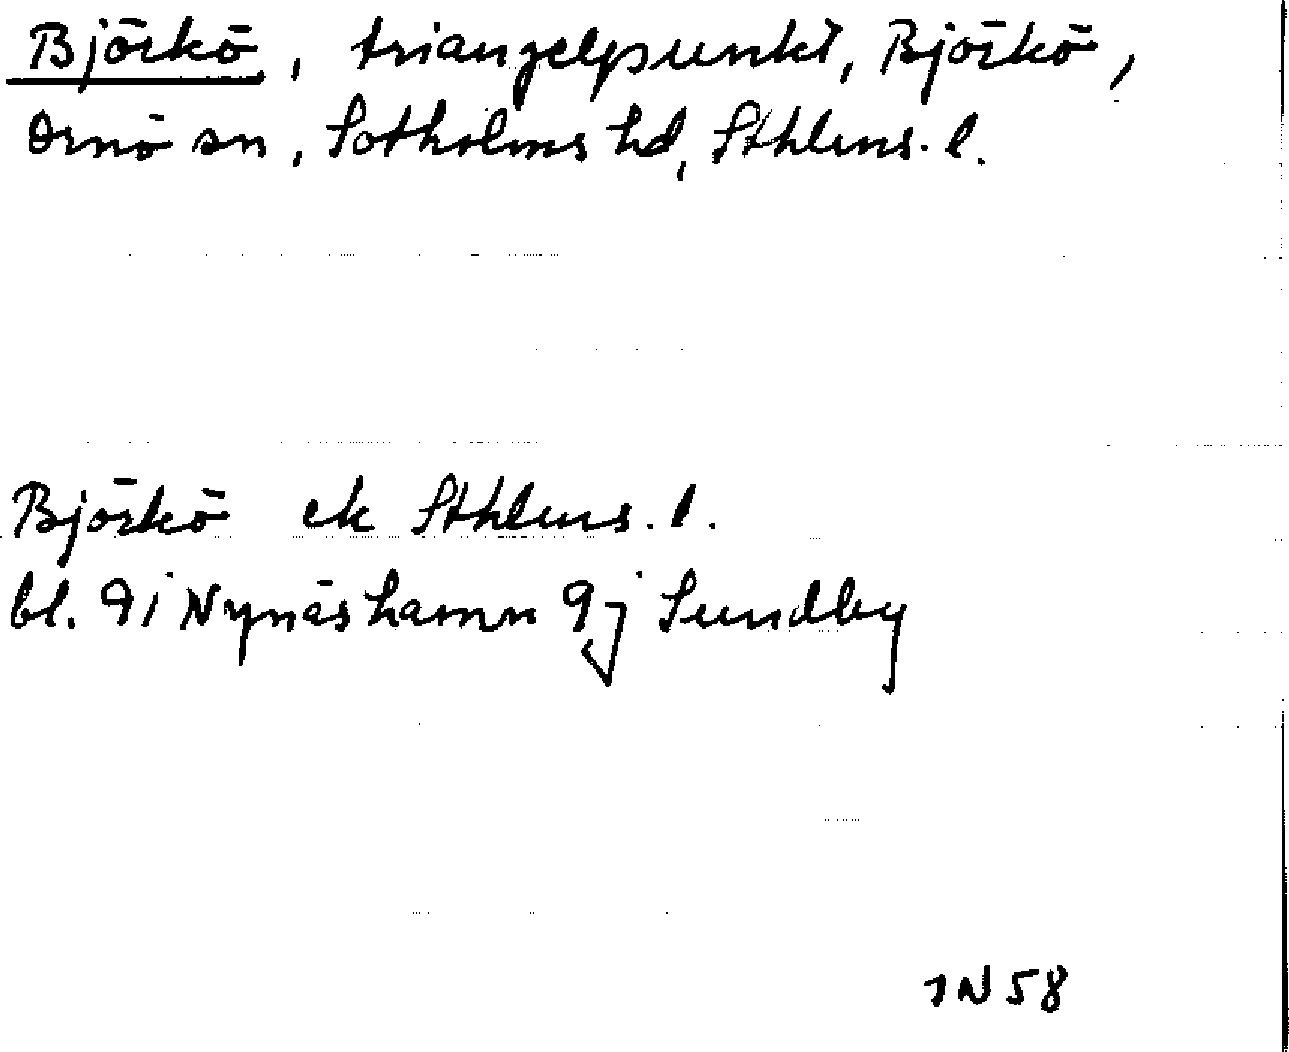 Björkö, triangelpunkt, Björkö,
Ornö sn, Sotholms hd, Sthlms. l.
Björkö ek Sthlms. l.
bl. 9i Nynäshamn 9j Sundby
IN 58